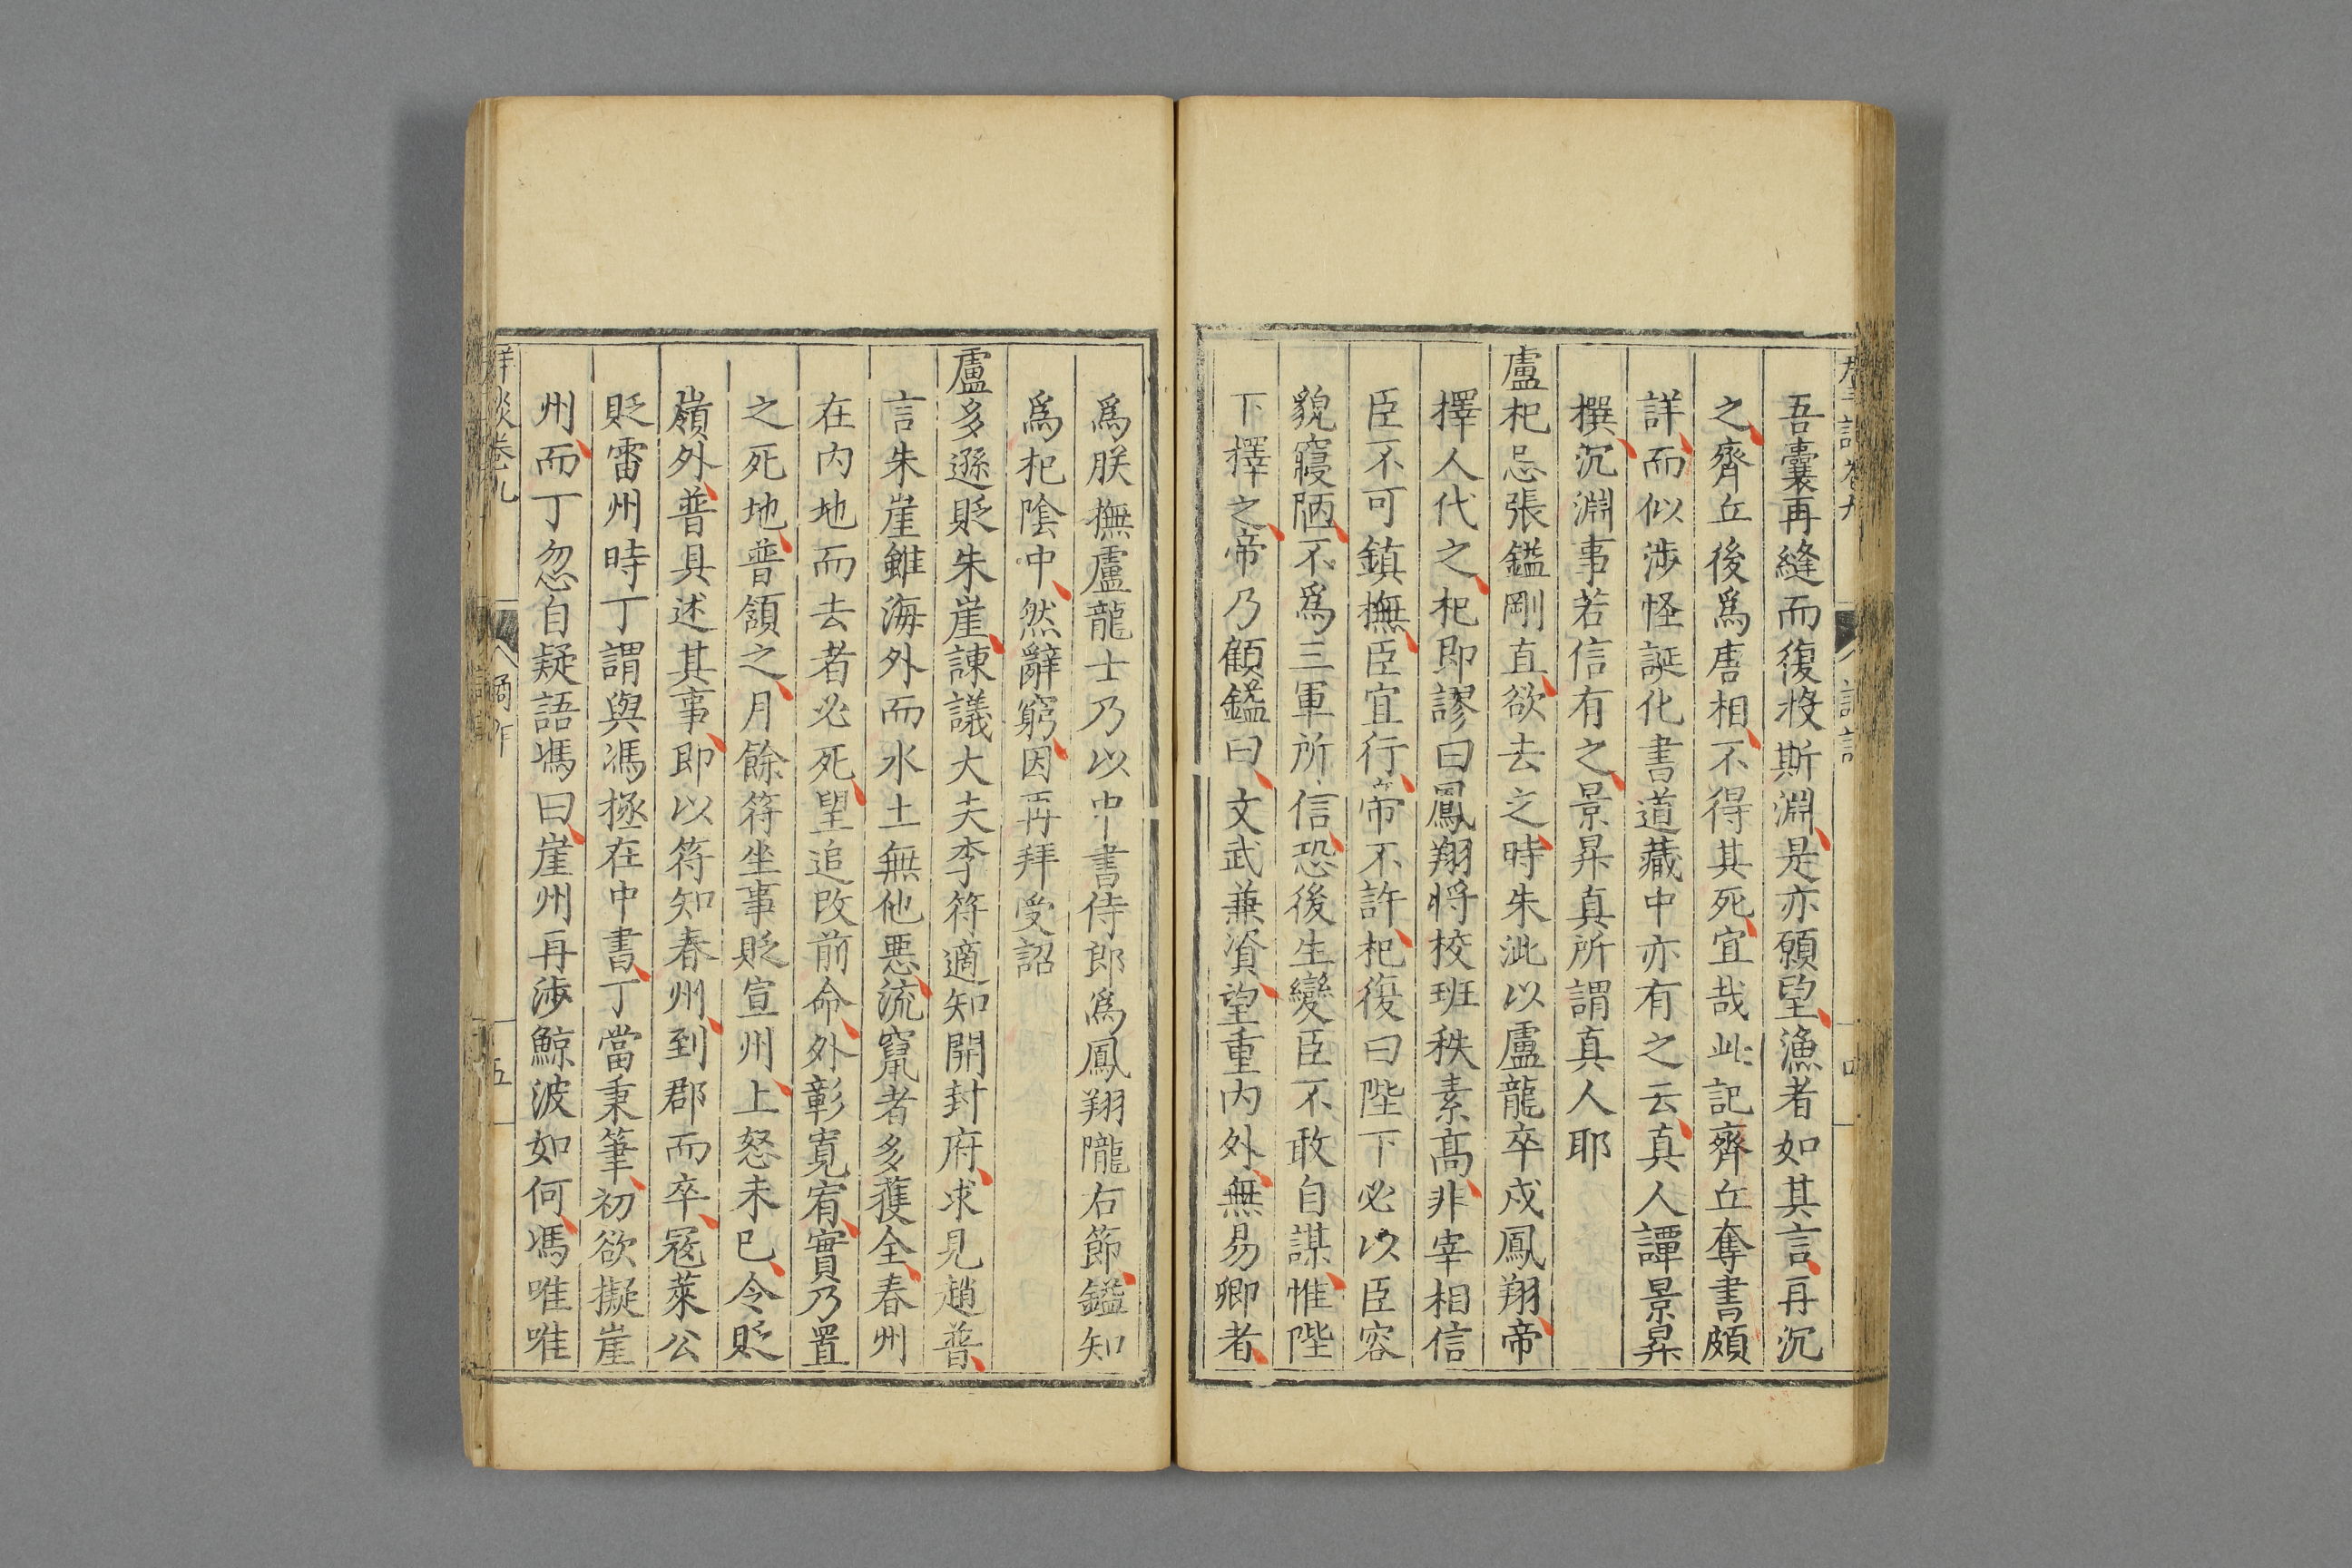 吾囊再縫而復投斯淵是亦願望漁者如其言再沉
之齊丘後爲唐相不得其死宜哉此記齊丘奪書頗
詳而似涉怪誕化書道藏中亦有之云真人譚景昇
撰沉淵事若信有之景昇真所謂真人耶
盧杞忌張鎰剛直欲去之時朱泚以盧龍卒戍鳳翔帝
擇人代之杞即謬曰鳳翔將校班秩素髙非宰相信
臣不可鎮撫臣宜行帝不許杞復曰陛下必以臣容
貌寢陋不爲三軍所信恐後生變臣不敢自謀惟陛
下擇之帝乃顧鎰曰文武兼資望重内外無易卿者
爲朕撫盧龍士乃以中書侍郎爲鳳翔隴右節鎰知
爲杞陰中然辭窮因再拜受詔
盧多遜貶朱崖諫議大夫李符適知開封府求見趙普
言朱崖雖海外而水土無他悪流竄者多獲全春州
在内地而去者必死望追改前命外彰寛宥實乃置
之死地普頷之月餘符坐事貶宣州上怒未已令貶
嶺外普具述其事即以符知春州到郡而卒冦萊公
貶雷州時丁謂與馮拯在中書丁當秉筆初欲擬崖
州而丁忽自疑語馮曰崖州再涉鯨波如何馮唯唯